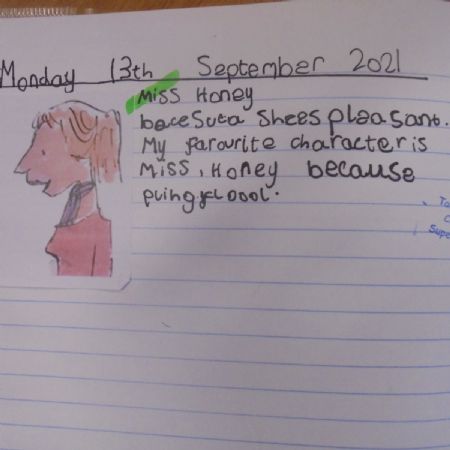 Monday 13th September 2021
Miss Honey
becesuca shees pleasant.
My favourite character is
Miss, Honey because